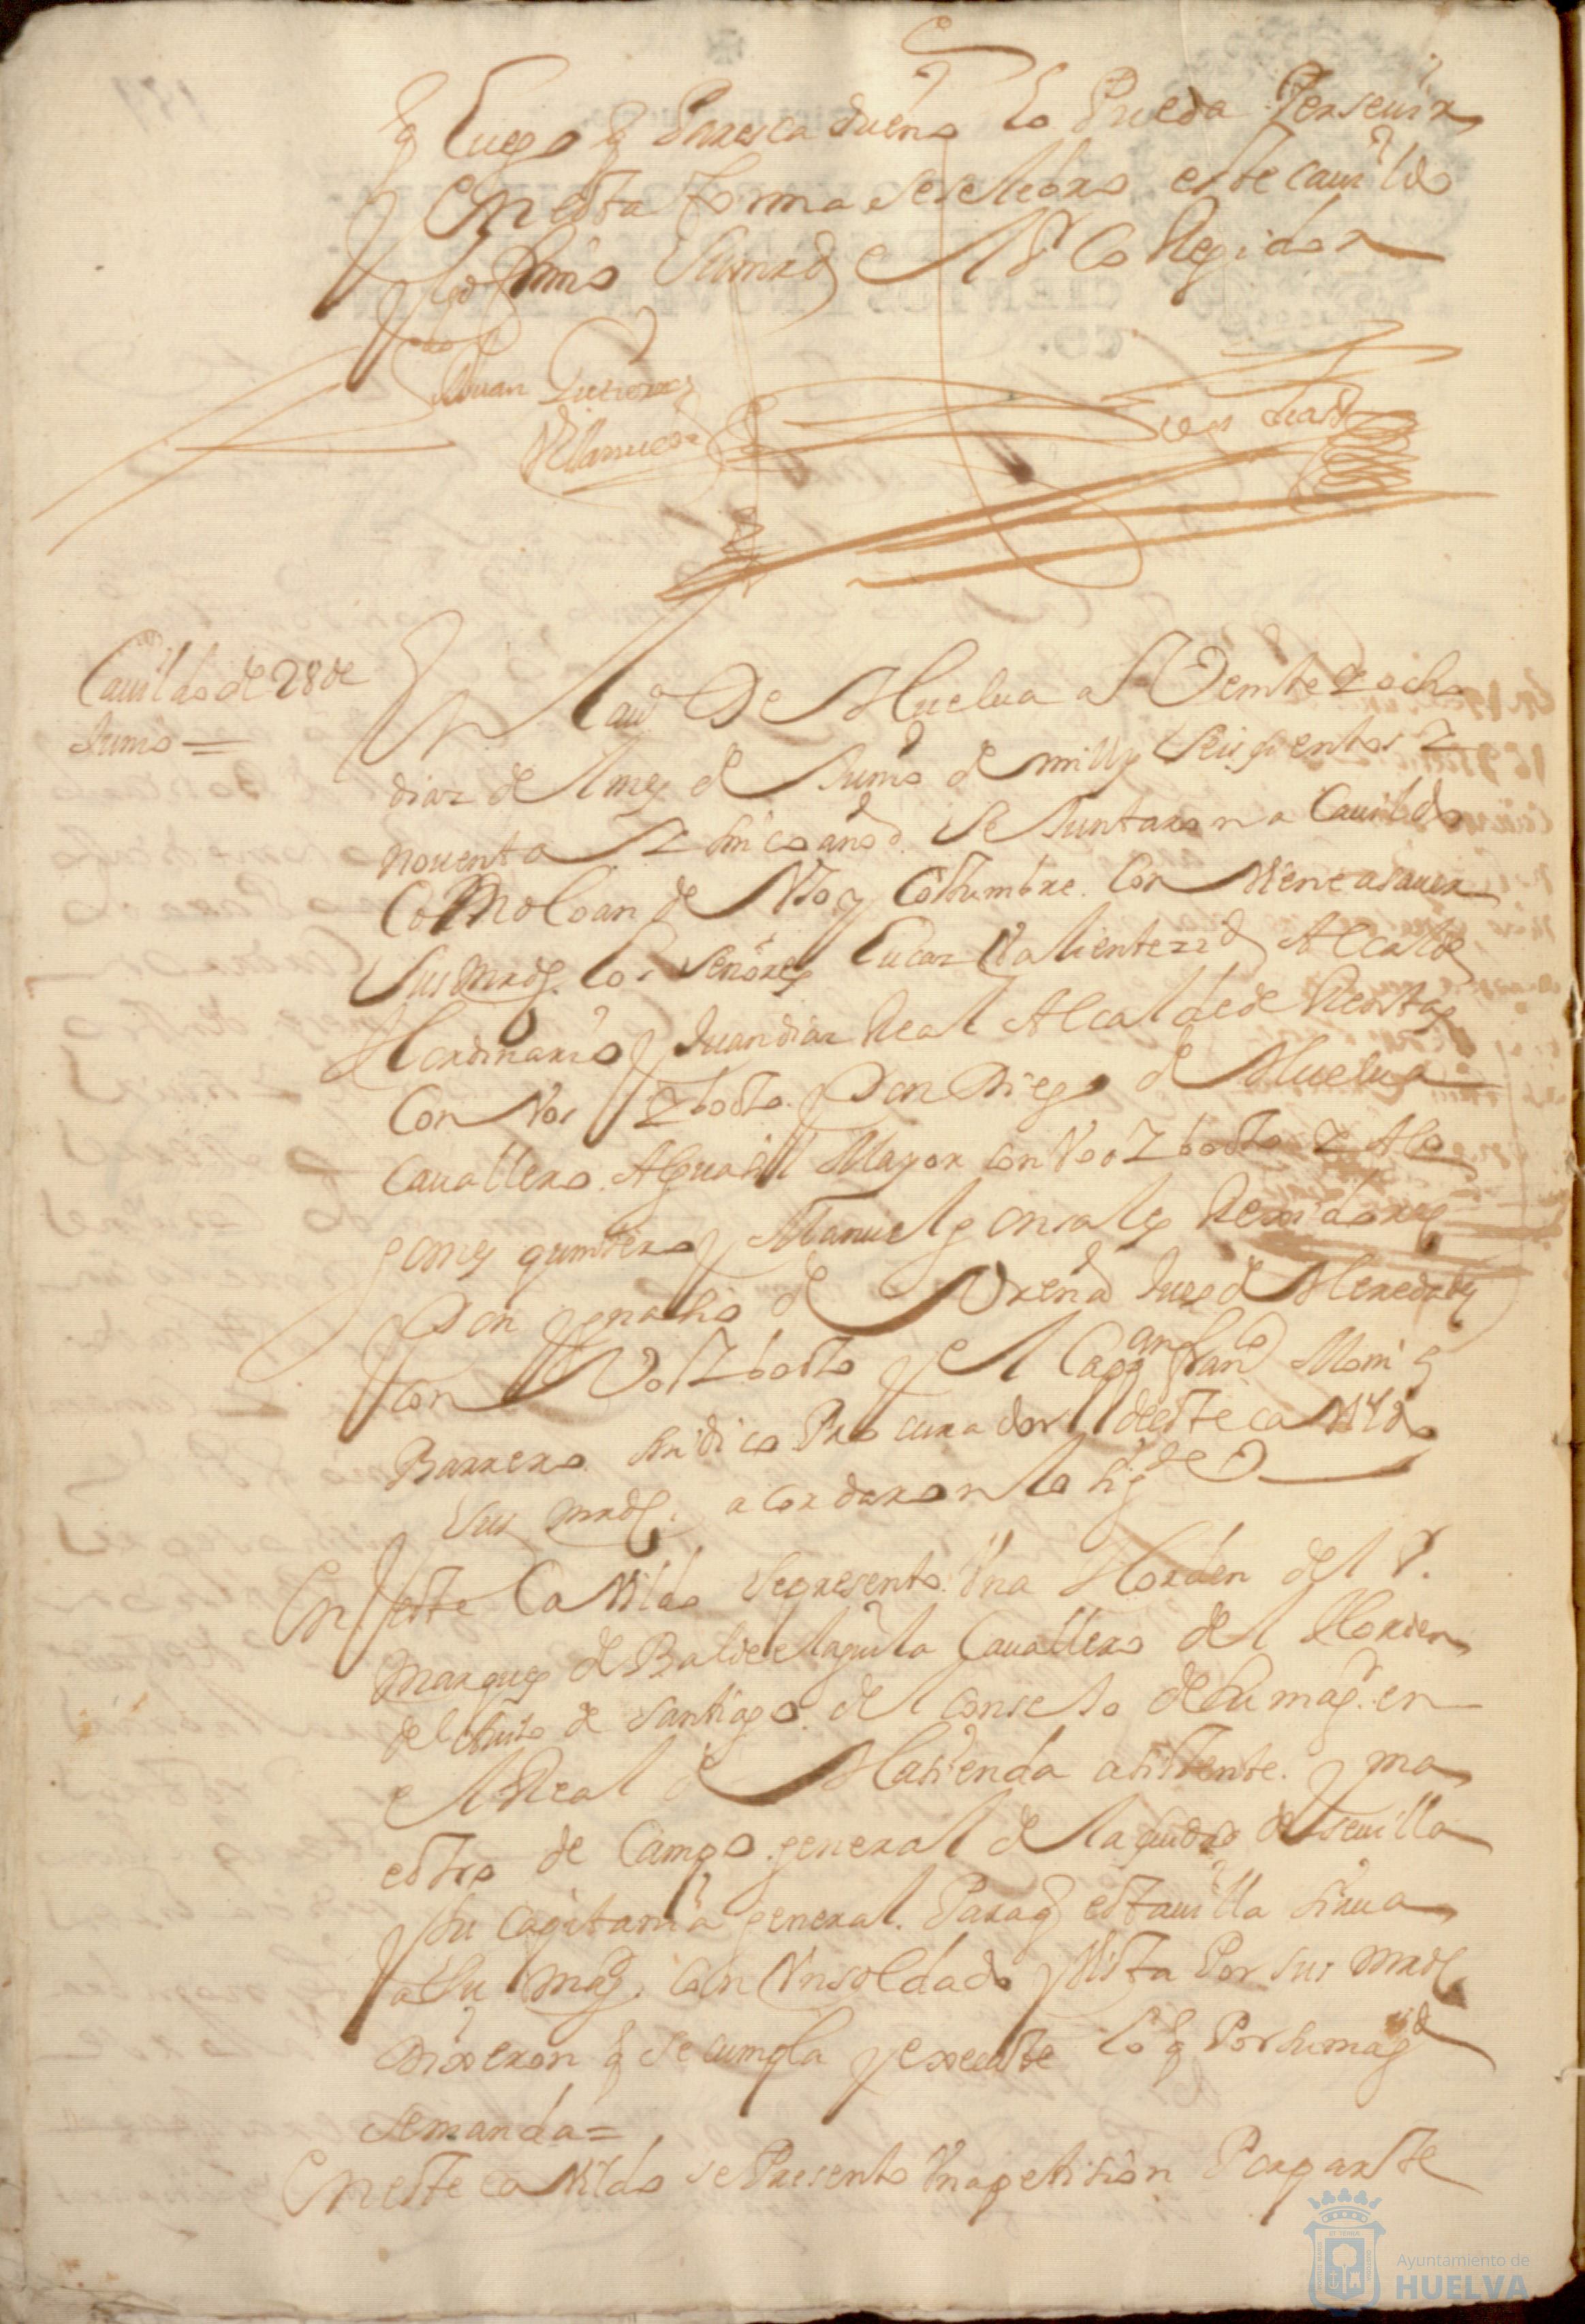 q luego q Paresca dueño lo Pueda Perseuir
y en esta forma se selebro este cauildo
y lo firmo su mrd el sr Corregidor
Juan Gutierres
Villanueva
Cauildo de 28 de
Junio =
En la uª De Huelua a Veinte z ocho
dias de el mes de Junio de mill y seiscientos z
nouenta z sinco años se Juntaron a Cauildo
Como lo an de Vso y Costumbre. Con uiene a sauer
sus mrds. los señores Lucas Valiente Alcalde
Hordinario y Juan dias Real Alcalde de Restas
Con Vos z boto. y Don Diego de Huelua
Cauallero. Alguasil Mayor con Vos z boto z Alo
gomes quintero y Manuel gonsales Rexidores
y Don Ygnacio de Vreña Jues de Heredades
con Vos z boto y el Capan Franco Moriis
Barrera sindico Procurador de este cavildo
sus mrds. acordaron lo sigte
En este Cavildo se presento Vna Horden del sr.
marques de Baldeelaguila Cauallero del Horden
del Auito de santiago. del consejo de su magd. en
el Real de Hasienda asistente. y ma
estro de Campo general de la ciudad de seuilla
y su capitania general. Para q esta uilla sirua
a su magd. con Vn soldado y Vista Por sus mrds
Dixeron q se cumpla y execute lo q Por su magd
se manda =
En este cavildo se Presento Vna petision Por parte
Ayuntamiento de
HUELVA